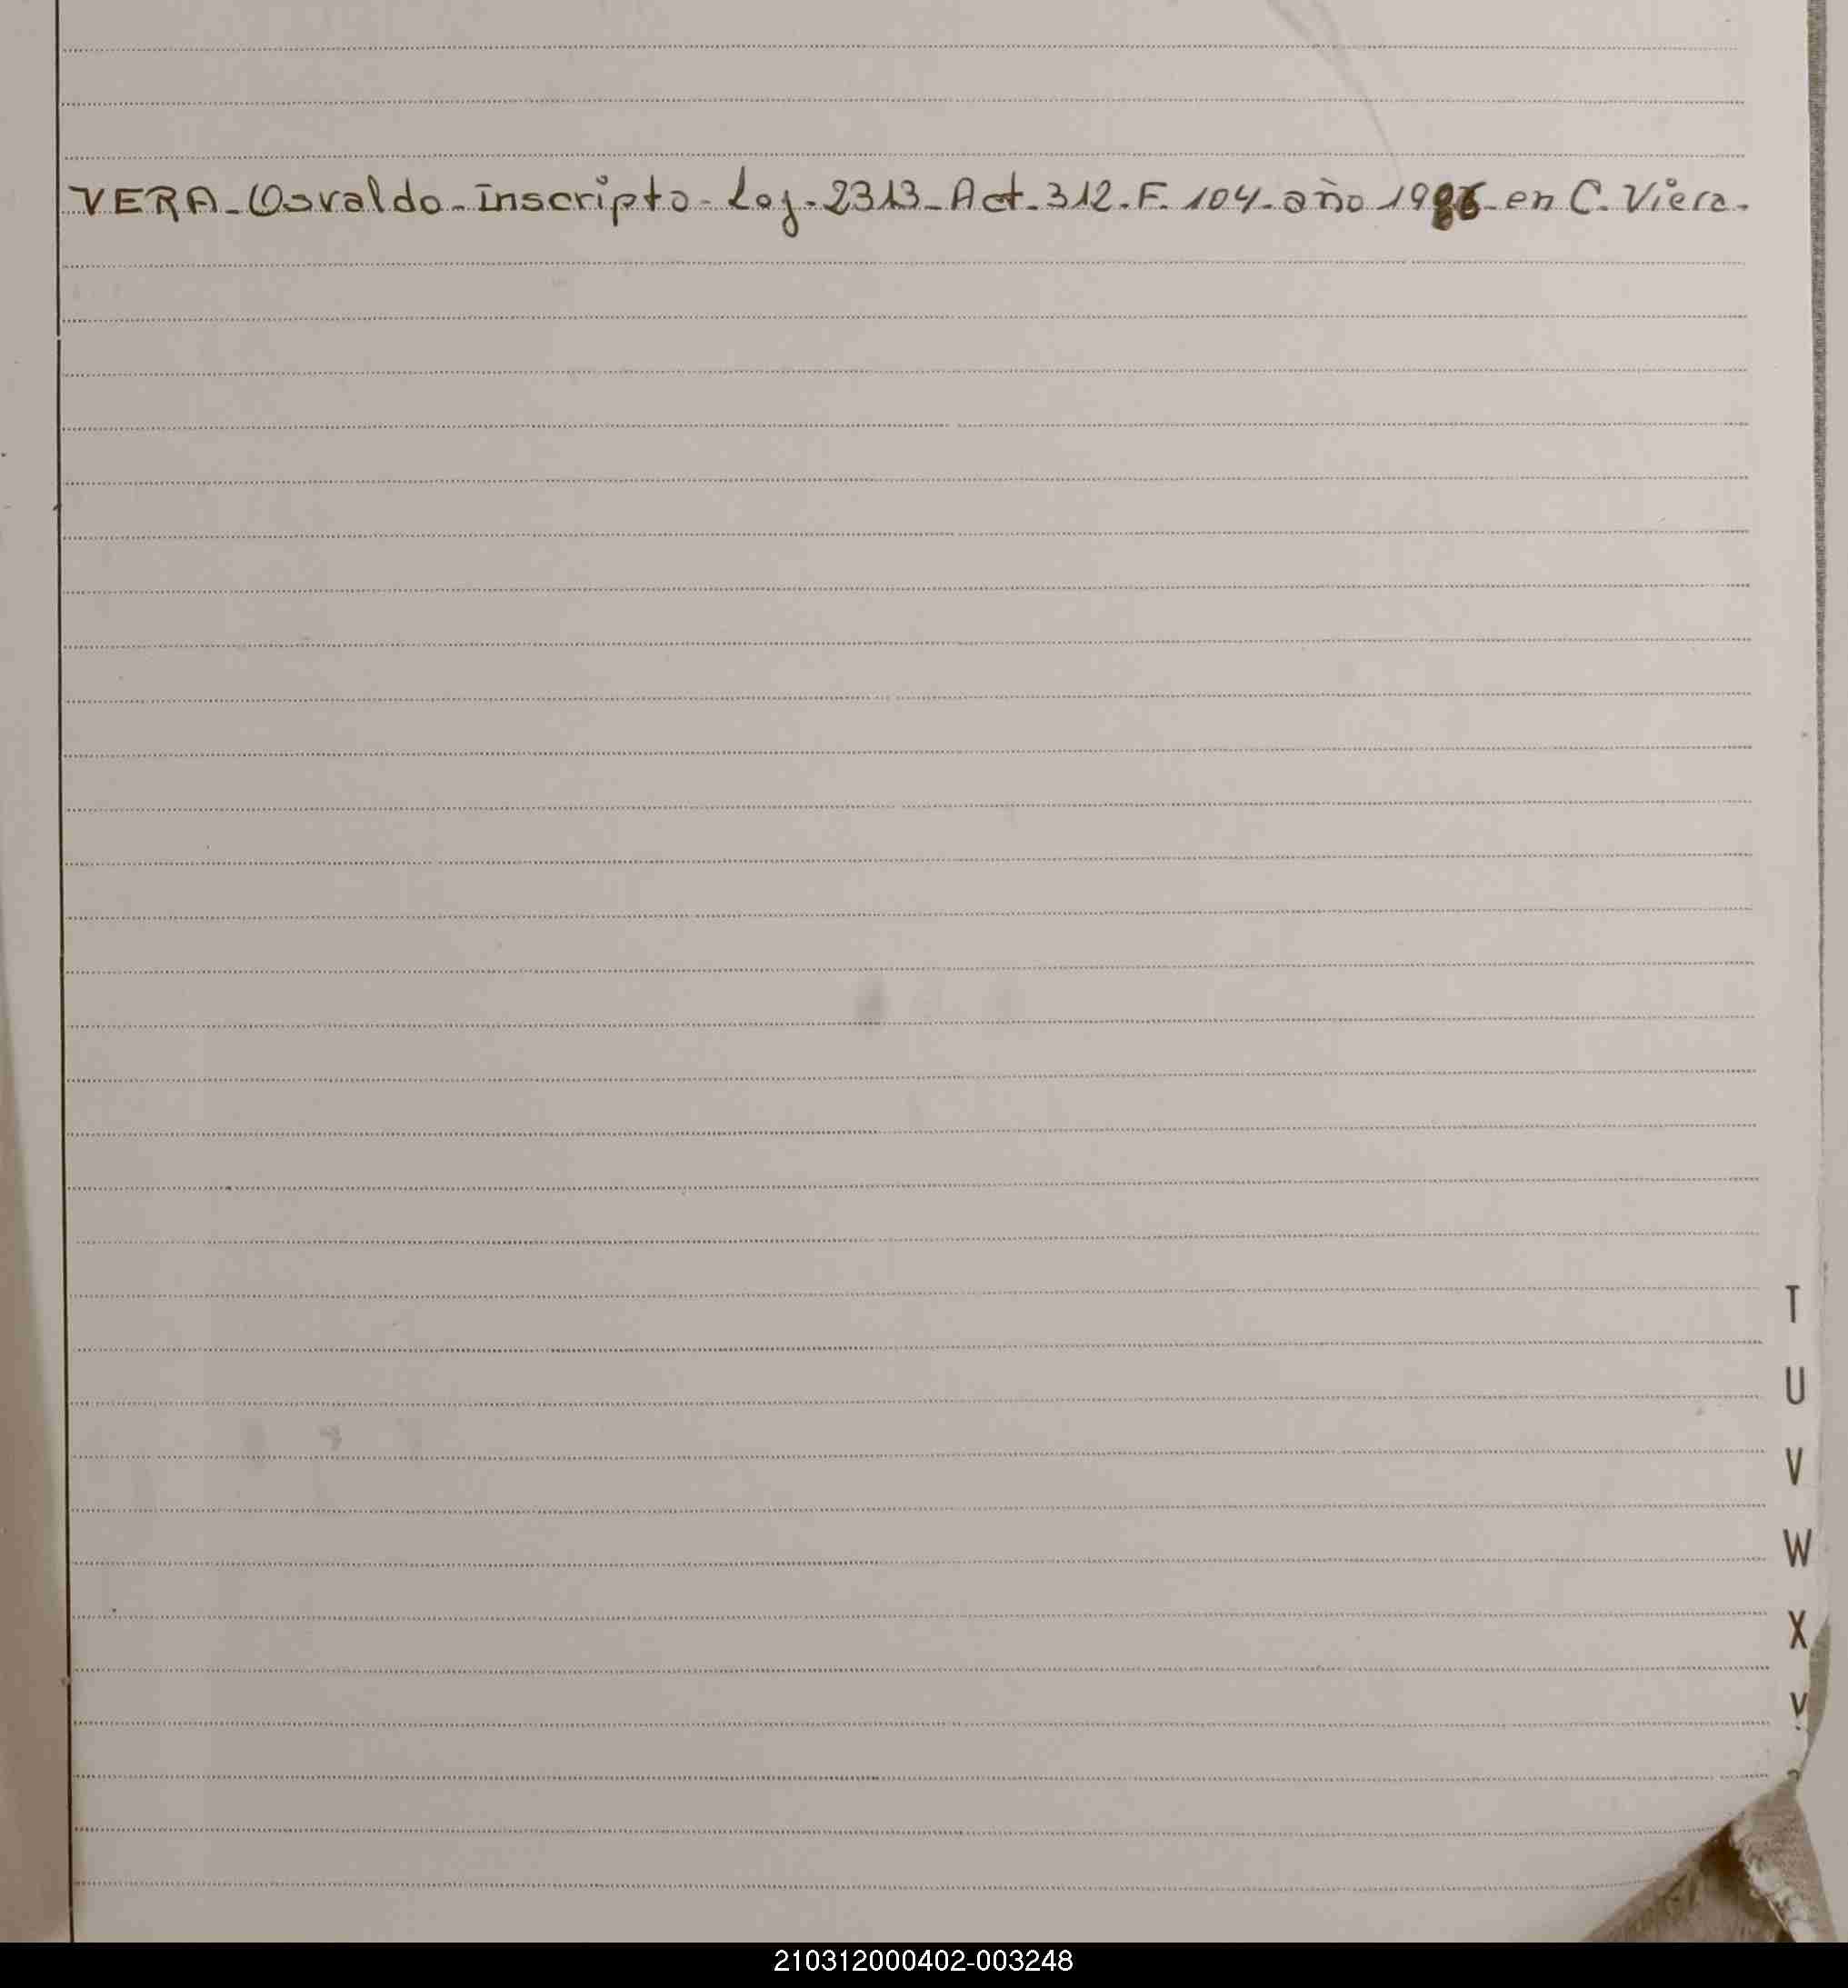 VERA-Osvaldo-Inscripto-Leg-2313-Act-312-F-104-año 1986-en C. Viera-
T
U
V
W
X
Y
210312000402-003248